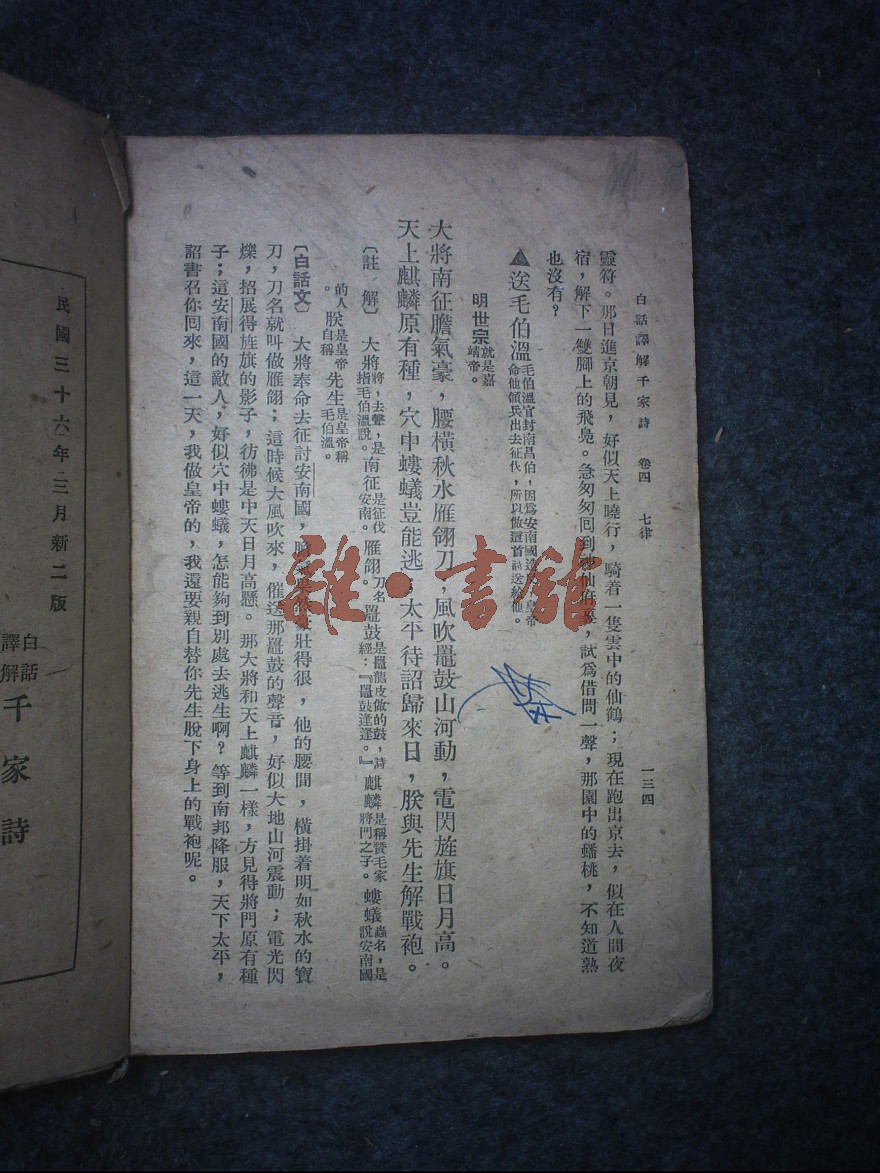 白話譯解千家詩　卷四　七律　一三四
靈符。那日進京朝見，好似天上曉行，騎着一隻雲中的仙鶴；現在跑出京去，似在人間夜
宿，解下一雙腳上的飛鳧。急匆匆回到神仙府裏，試爲借問一聲，那園中的蟠桃，不知道熟
也沒有？
▲送毛伯溫
毛伯溫官封南昌伯，因爲安南國造反，皇帝
命他領兵出去征伐，所以做這首詩送給他。
明世宗
就是嘉
靖帝。
大將南征膽氣豪，腰橫秋水雁翎刀，風吹鼉鼓山河動，電閃旌旗日月高。
天上麒麟原有種，穴中螻蟻豈能逃。太平待詔歸來日，朕與先生解戰袍。
〔註解〕大將
將，去聲，是
指毛伯溫說。
南征
是征伐
安南。
雁翎
刀名
鼉鼓
是鼉龍皮做的鼓，詩
經：『鼉鼓逢逢。』
麒麟
是稱贊毛家
將門之子。
螻蟻
蟲名，是
說安南國
的人
。
朕
是皇帝
自稱
先生
是皇帝稱
毛伯溫。
〔白話文〕大將奉命去征討安南國，膽氣果然豪壯得很，他的腰間，橫掛着明如秋水的寶
刀，刀名就叫做雁翎；這時候大風吹來，催送那鼉鼓的聲音，好似大地山河震動；電光閃
爍，招展得旌旗的影子，彷彿是中天日月高懸。那大將和天上麒麟一樣，方見得將門原有種
子；這安南國的敵人，好似穴中螻蟻，怎能夠到別處去逃生啊？等到南邦降服，天下太平，
詔書召你回來，這一天，我做皇帝的，我還要親自替你先生脫下身上的戰袍呢。
民國三十六年三月新二版
白話
譯解
千家詩
雜·書館